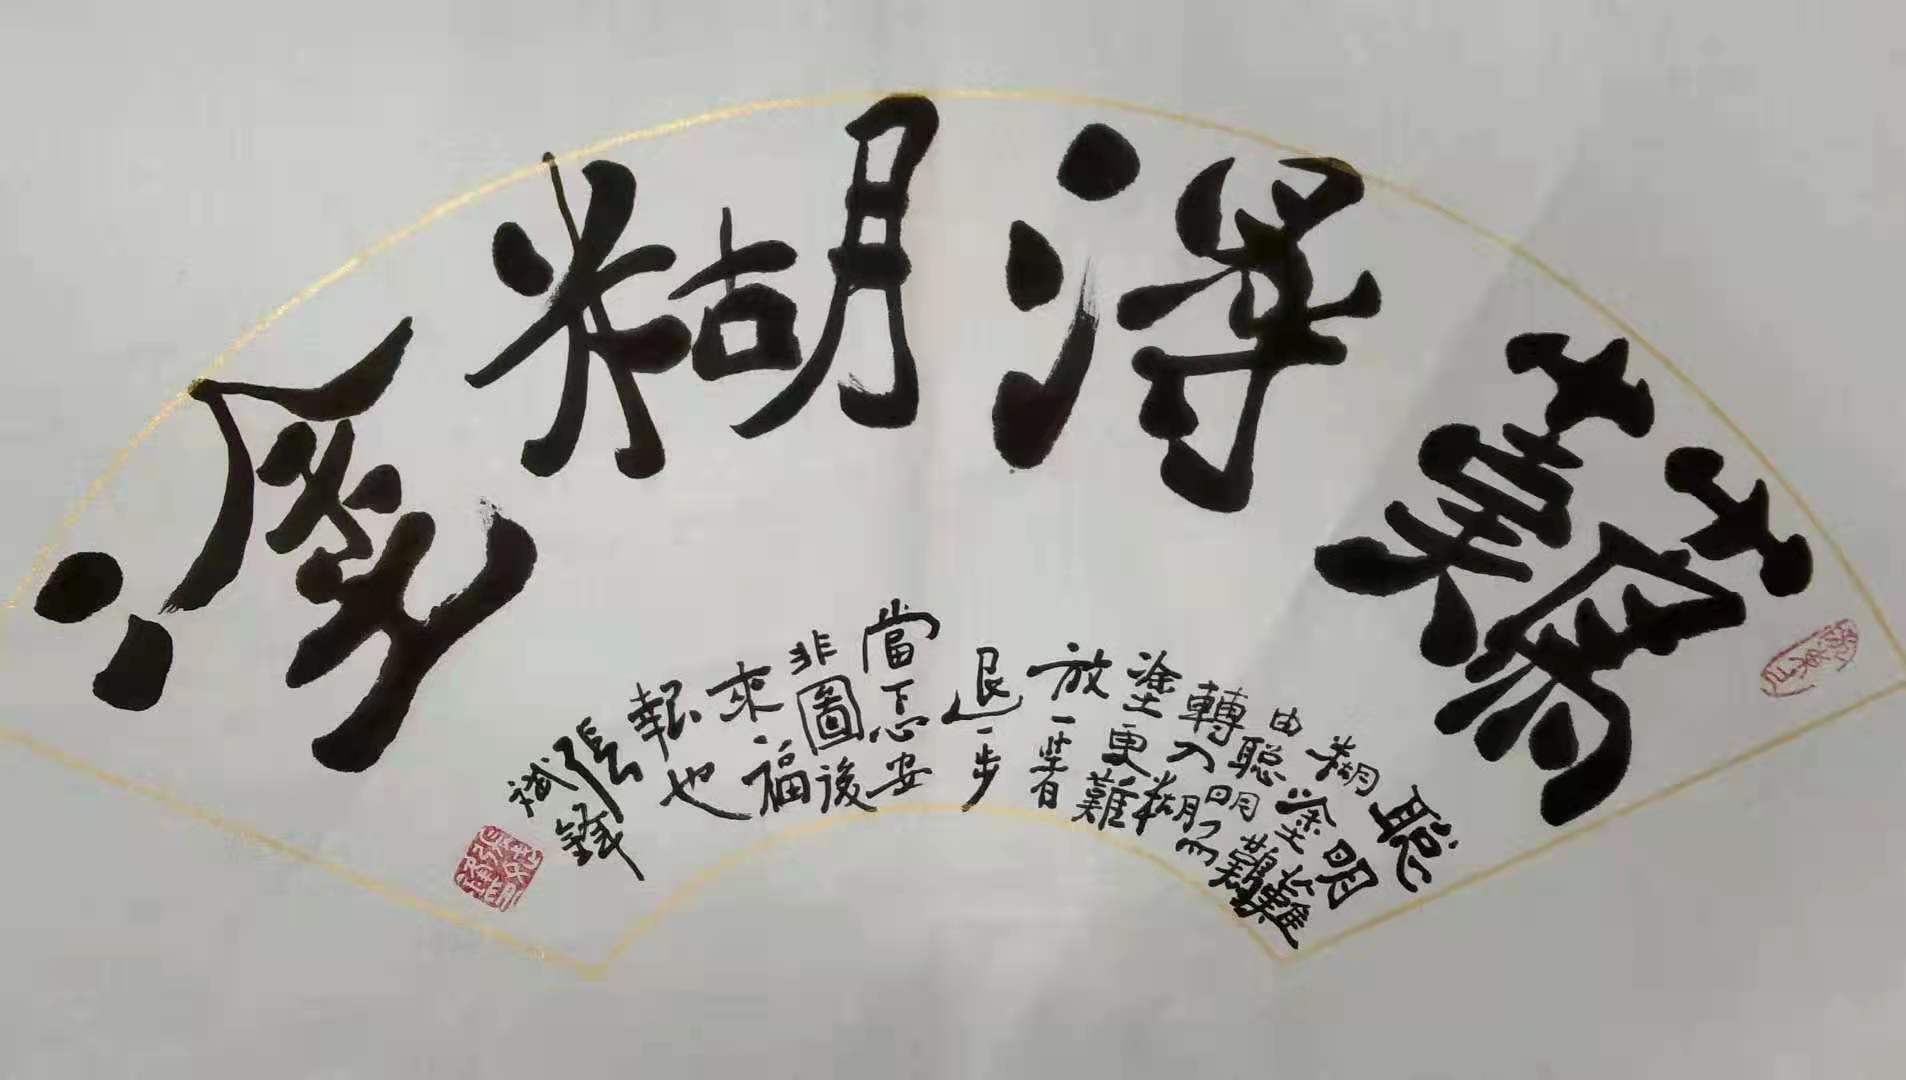 難得糊塗
聰明難
糊塗難
由聰明而
轉入糊
塗更難
放一著
退一步
當下心安
非圖後
來福
報也
張
鋒